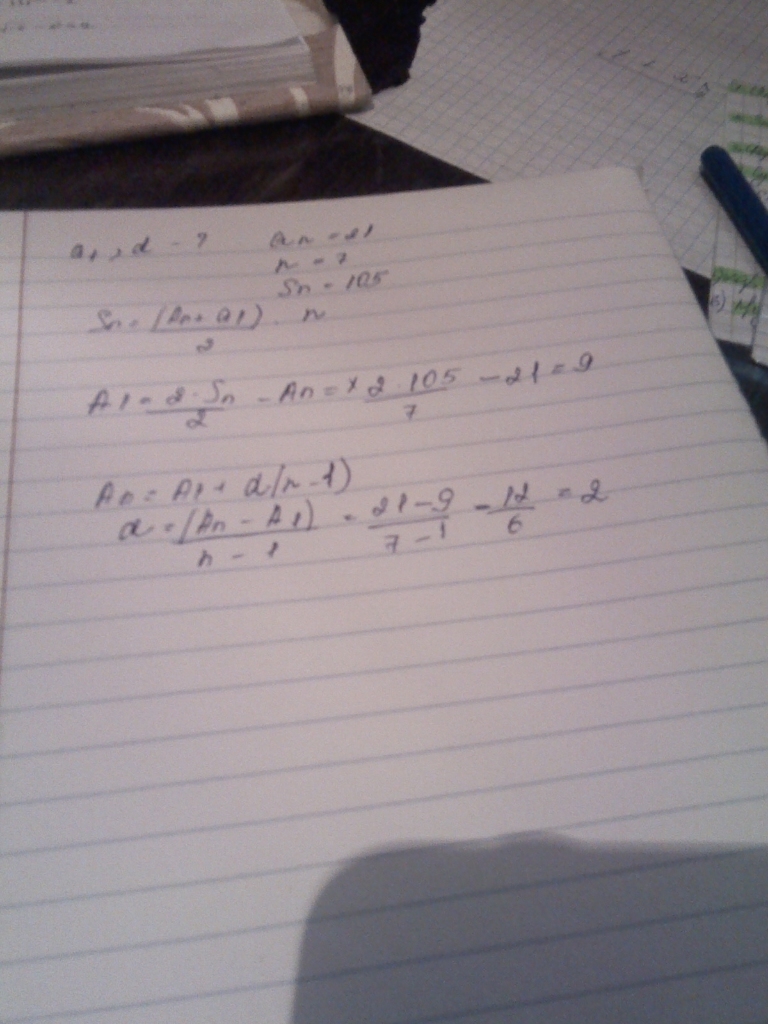 a1, d - ? an = 21
n = 7
Sn = 105
Sn = (An + a1) / 2 · n
A1 = 2 · Sn / 2 - An = 2 · 105 / 7 - 21 = 9
An = A1 + d(n - 1)
d = (An - A1) / n - 1 = 21 - 9 / 7 - 1 = 12 / 6 = 2